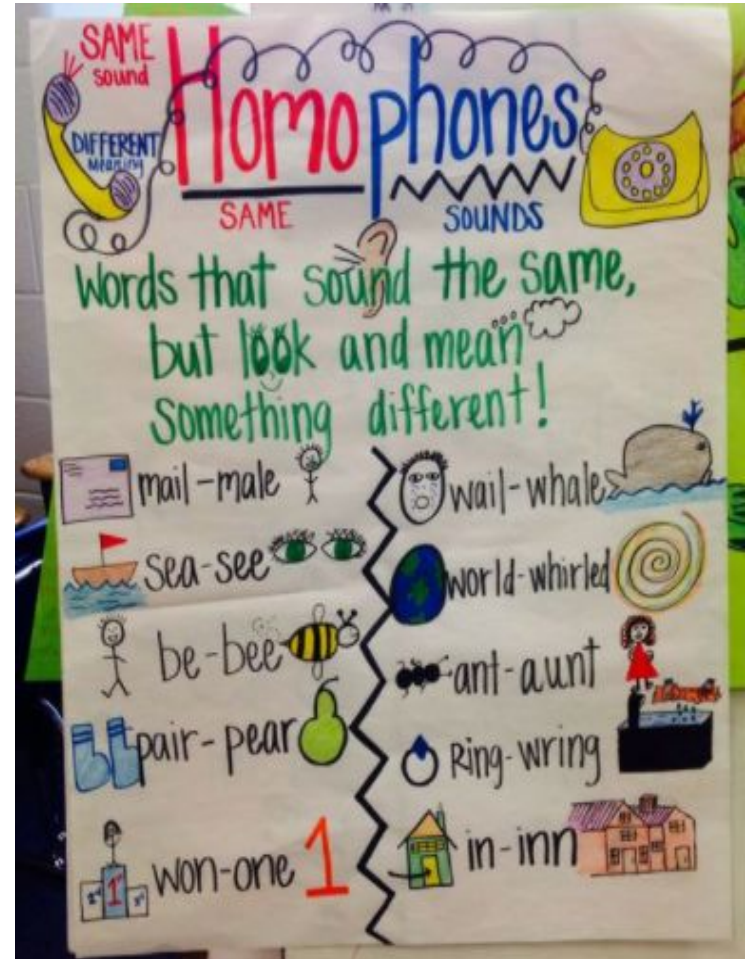 SAME
sound
DIFFERENT
meaning
Homophones
SAME SOUNDS
Words that sound the same,
but look and mean
something different!
mail-male
sea-see
be-bee
pair-pear
won-one 1
2nd 1st 3rd
wail-whale
world-whirled
ant-aunt
Ring-wring
in-inn